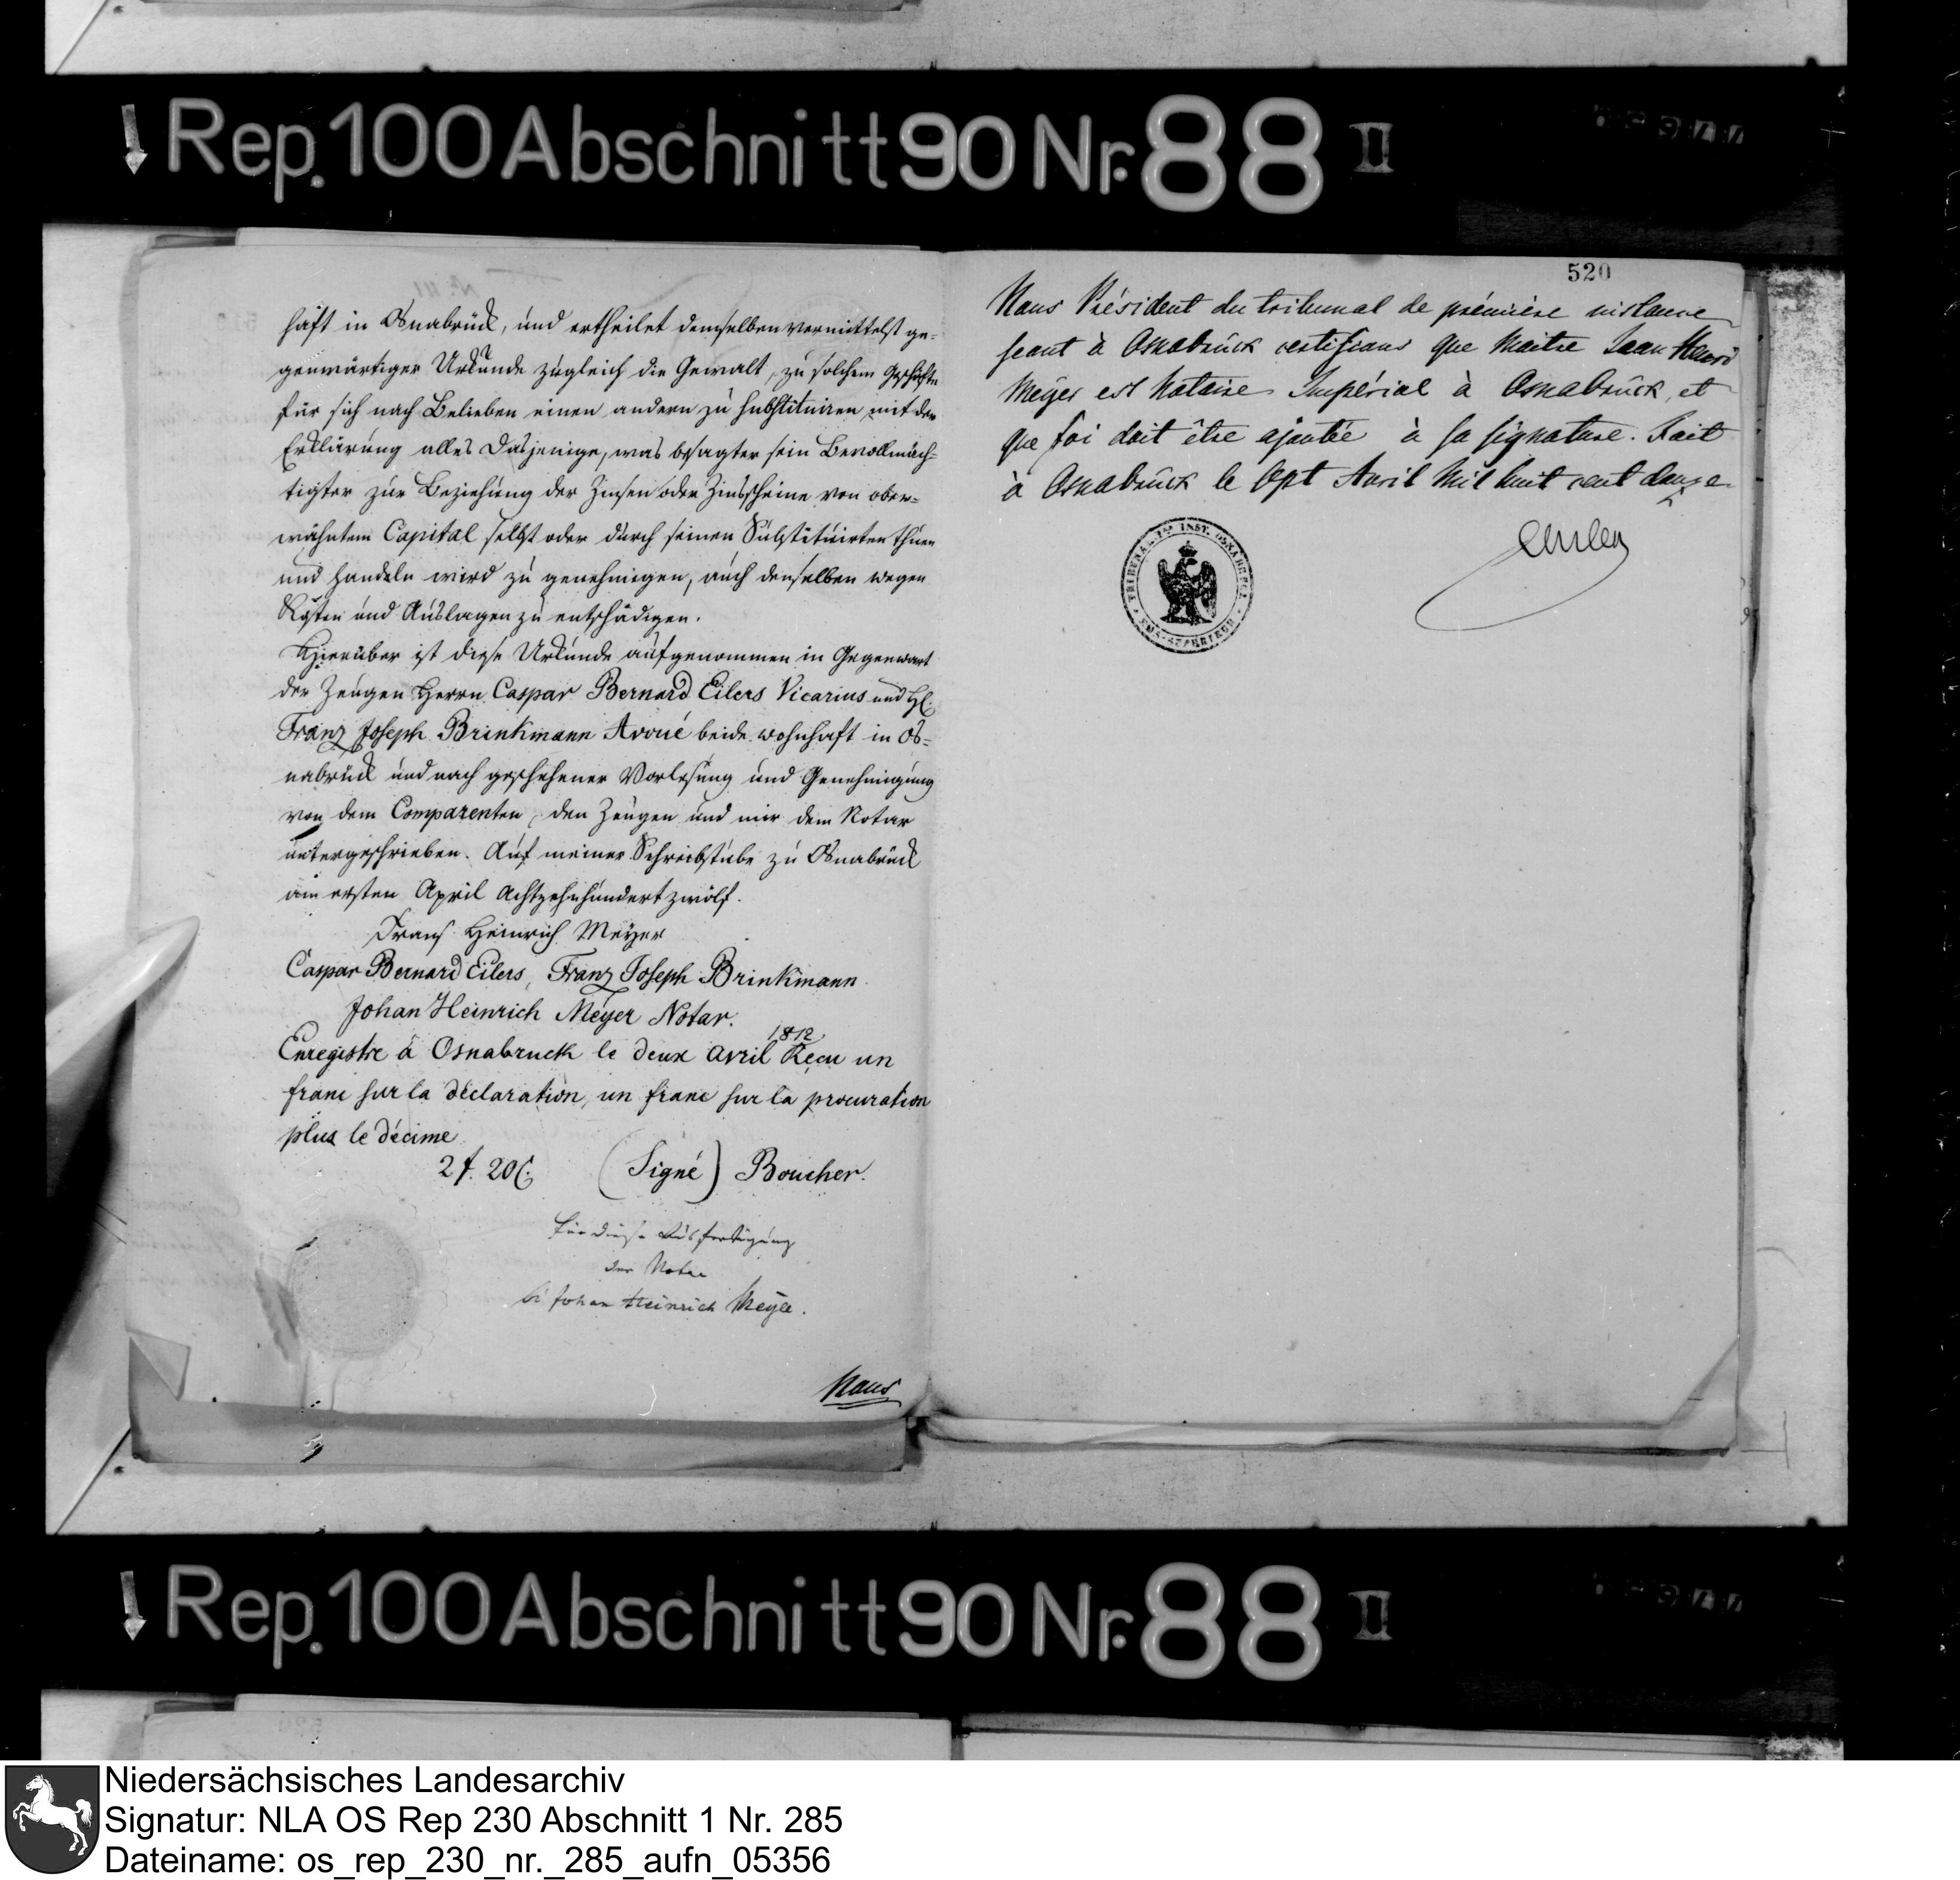 Rep. 100 Abschnitt 90 Nr. 88 II
haft in Osnabrück, und ertheilet demselben vermittelst ge-
genwärtiger Urkunde zugleich die Gewalt, zu solchem Geschäfte
für sich nach Belieben einen andern zu substituiren mit der
Erklärung alles Dasjenige, was besagter sein Bevollmäch-
tigter zur Beziehung der Zinsen oder Zinsscheine von ober-
wähntem Capital selbst oder durch seinen Substituirten thuen
und handeln wird zu genehmigen, auch denselben wegen
Kosten und Auslagen zu entschädigen.
Hierüber ist diese Urkunde aufgenommen in Gegenwart
der Zeugen Herrn Caspar Bernard Eilers Vicarius und H.
Franz Joseph Brinkmann Avoué beide wohnhaft in Os-
nabrück und nach geschehener Vorlesung und Genehmigung
von dem Comparenten, den Zeugen und mir dem Notar
untergeschrieben. Auf meiner Schreibstube zu Osnabrück
am ersten April Achtzehnhundert zwölf.
Frans Heinrich Meyer
Caspar Bernard Eilers, Franz Joseph Brinkmann
Johan Heinrich Meyer Notar.
1812
Enregistre à Osnabruck le deux avril Recu un
franc sur la déclaration, un franc sur la procuration
plus le décime
2 f. 20 C. (Signé) Boucher.
Für diese Ausfertigung
der Notar
Johan Heinrich Meyer.
Nous
520
Nous Président du tribunal de prémière instance
seant à Osnabrück certifions que Maitre Jean Henri
Meyer est Notaire Impérial à Osnabrück, et
que foi doit être ajoutée à sa signature. Fait
à Osnabrück le sept Avril Mil huit cent douze
TRIBUNAL 1RE INST. OSNABRUCK
Rep. 100 Abschnitt 90 Nr. 88 II
Niedersächsisches Landesarchiv
Signatur: NLA OS Rep 230 Abschnitt 1 Nr. 285
Dateiname: os_rep_230_nr._285_aufn_05356